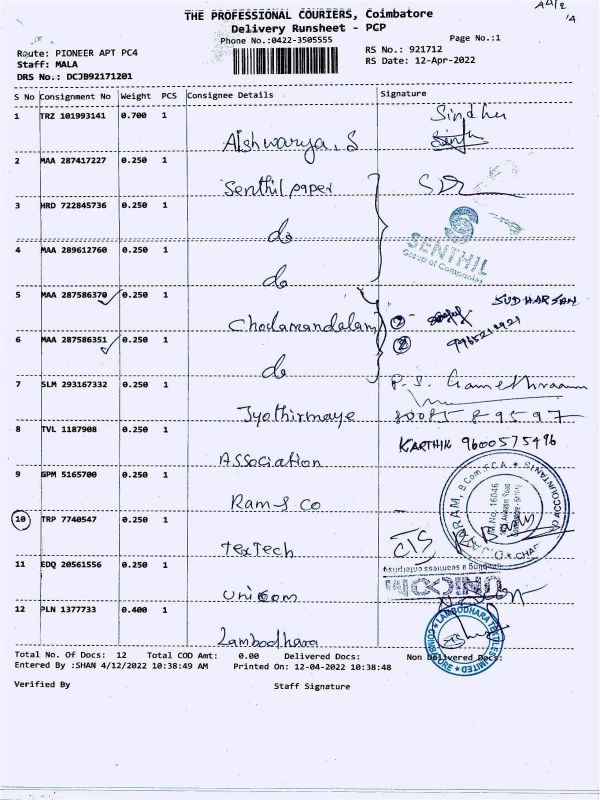 THE PROFESSIONAL COURIERS, Coimbatore
Delivery Runsheet - PCP
Phone No.:0422-3505555
Page No.:1
Route: PIONEER APT PC4
RS No.: 921712
Staff: MALA
RS Date: 12-Apr-2022
DRS No.: DCJB92171201
S No Consignment No Weight PCS Consignee Details Signature
1 TRZ 101993141 0.700 1 Aishwarya.S Sindhu
2 MAA 287417227 0.250 1 Senthil paper
3 HRD 722845736 0.250 1 do
SENTHIL
Group of Companies
4 MAA 289612760 0.250 1 do
5 MAA 287586370 0.250 1 Cholamandalam SUDHARSAN
6 MAA 287586351 0.250 1 do
7 SLM 293167332 0.250 1 Jyothirmaye
8 TVL 1187908 0.250 1 Association KARTHIK 9600575496
9 GPM 5165700 0.250 1 Ram & Co
M.No. 16046
10 TRP 7740547 0.250 1 TexTech
11 EDQ 20561556 0.250 1 Unicom
UNICOM
12 PLN 1377733 0.400 1 Lambodhara
LAMBODHARA TEXTILES LIMITED
COIMBATORE
Total No. Of Docs: 12 Total COD Amt: 0.00 Delivered Docs: Non Delivered Docs:
Entered By :SHAN 4/12/2022 10:38:49 AM Printed On: 12-04-2022 10:38:48
Verified By Staff Signature